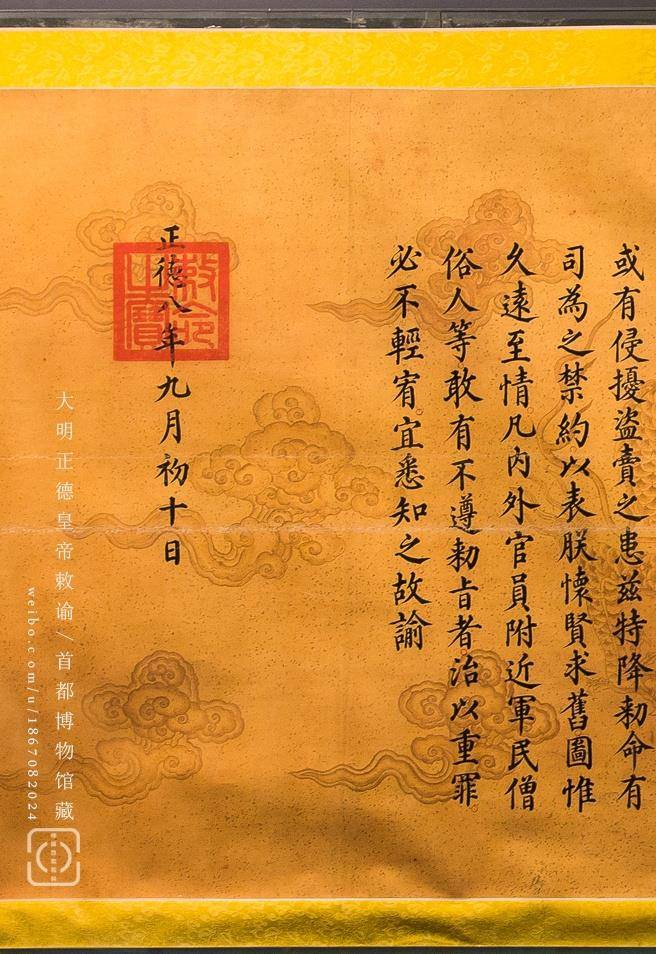 或有侵擾盜賣之患兹特降勑命有
司為之禁約以表朕懷賢求舊圖惟
久遠至情凡內外官員附近軍民僧
俗人等敢有不遵勑旨者治以重罪
必不輕宥宜悉知之故諭
正德八年九月初十日
敕命之寶
大明正德皇帝敕谕/首都博物馆藏
weibo.com/u/1867082024